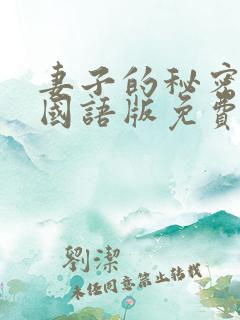 妻子的秘密
國語版免費
劉潔
未任同意禁止转载